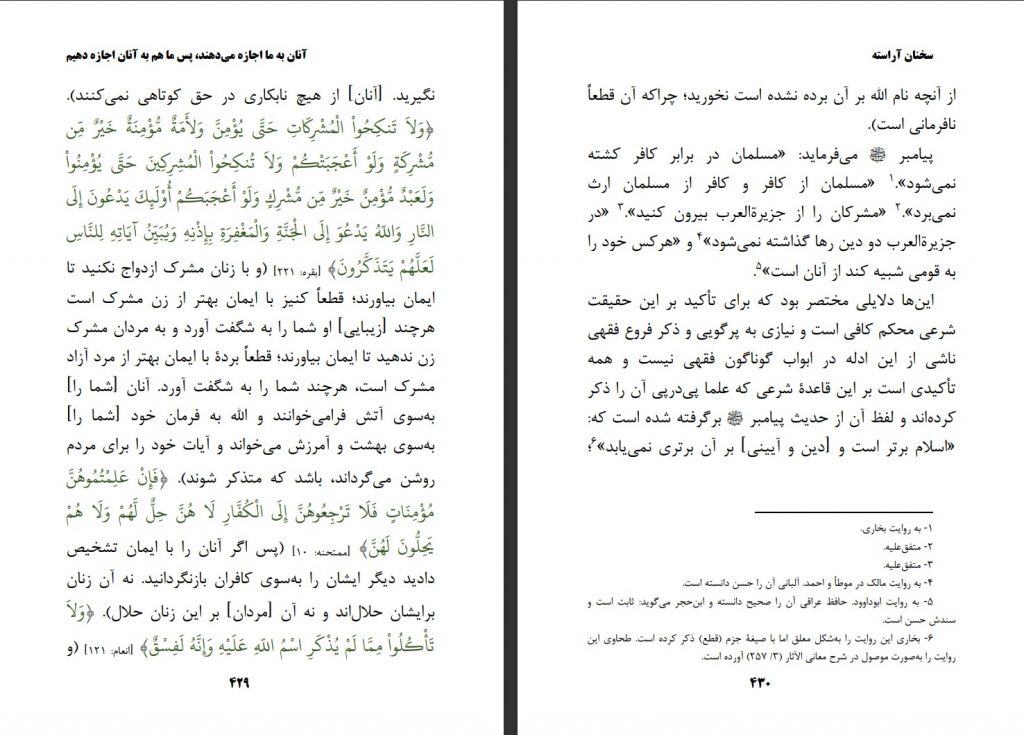 آنان به ما اجازه می‌دهند، پس ما هم به آنان اجازه دهیم
نگیرید. [آنان] از هیچ نابکاری در حق کوتاهی نمی‌کنند).
﴿وَلاَ تَنكِحُواْ الْمُشْرِكَاتِ حَتَّى يُؤْمِنَّ وَلأَمَةٌ مُّؤْمِنَةٌ خَيْرٌ مِّن
مُّشْرِكَةٍ وَلَوْ أَعْجَبَتْكُمْ وَلاَ تُنكِحُواْ الْمُشِرِكِينَ حَتَّى يُؤْمِنُواْ
وَلَعَبْدٌ مُّؤْمِنٌ خَيْرٌ مِّن مُّشْرِكٍ وَلَوْ أَعْجَبَكُمْ أُوْلَئِكَ يَدْعُونَ إِلَى
النَّارِ وَاللهُ يَدْعُوَ إِلَى الْجَنَّةِ وَالْمَغْفِرَةِ بِإِذْنِهِ وَيُبَيِّنُ آيَاتِهِ لِلنَّاسِ
لَعَلَّهُمْ يَتَذَكَّرُونَ﴾ [بقره: ۲۲۱] (و با زنان مشرک ازدواج نکنید تا
ایمان بیاورند؛ قطعاً کنیز با ایمان بهتر از زن مشرک است
هرچند [زیبایی] او شما را به شگفت آورد و به مردان مشرک
زن ندهید تا ایمان بیاورند؛ قطعاً بردهٔ با ایمان بهتر از مرد آزاد
مشرک است، هرچند شما را به شگفت آورد. آنان [شما را]
به‌سوی آتش فرامی‌خوانند و الله به فرمان خود [شما را]
به‌سوی بهشت و آمرزش می‌خواند و آیات خود را برای مردم
روشن می‌گرداند، باشد که متذکر شوند). ﴿فَإِنْ عَلِمْتُمُوهُنَّ
مُؤْمِنَاتٍ فَلَا تَرْجِعُوهُنَّ إِلَى الْكُفَّارِ لَا هُنَّ حِلٌّ لَّهُمْ وَلَا هُمْ
يَحِلُّونَ لَهُنَّ﴾ [ممتحنه: ۱۰] (پس اگر آنان را با ایمان تشخیص
دادید دیگر ایشان را به‌سوی کافران بازنگردانید. نه آن زنان
برایشان حلال‌اند و نه آن [مردان] بر این زنان حلال). ﴿وَلاَ
تَأْكُلُواْ مِمَّا لَمْ يُذْكَرِ اسْمُ اللهِ عَلَيْهِ وَإِنَّهُ لَفِسْقٌ﴾ [انعام: ۱۲۱] (و
۴۲۹
سخنان آراسته
از آنچه نام الله بر آن برده نشده است نخورید؛ چراکه آن قطعاً
نافرمانی است).
پیامبر ﷺ می‌فرماید: «مسلمان در برابر کافر کشته
نمی‌شود».۱ «مسلمان از کافر و کافر از مسلمان ارث
نمی‌برد».۲ «مشرکان را از جزیرةالعرب بیرون کنید».۳ «در
جزیرةالعرب دو دین رها گذاشته نمی‌شود»۴ و «هرکس خود را
به قومی شبیه کند از آنان است»۵.
این‌ها دلایلی مختصر بود که برای تأکید بر این حقیقت
شرعی محکم کافی است و نیازی به پرگویی و ذکر فروع فقهی
ناشی از این ادله در ابواب گوناگون فقهی نیست و همه
تأکیدی است بر این قاعدهٔ شرعی که علما پی‌درپی آن را ذکر
کرده‌اند و لفظ آن از حدیث پیامبر ﷺ برگرفته شده است که:
«اسلام برتر است و [دین و آیینی] بر آن برتری نمی‌یابد»۶؛
۱- به روایت بخاری.
۲- متفق‌علیه.
۳- متفق‌علیه.
۴- به روایت مالک در موطأ و احمد. آلبانی آن را حسن دانسته است.
۵- به روایت ابوداوود. حافظ عراقی آن را صحیح دانسته و ابن‌حجر می‌گوید: ثابت است و
سندش حسن است.
۶- بخاری این روایت را به‌شکل معلق اما با صیغهٔ جزم (قطع) ذکر کرده است. طحاوی این
روایت را به‌صورت موصول در شرح معانی الآثار (۳/ ۲۵۷) آورده است.
۴۳۰